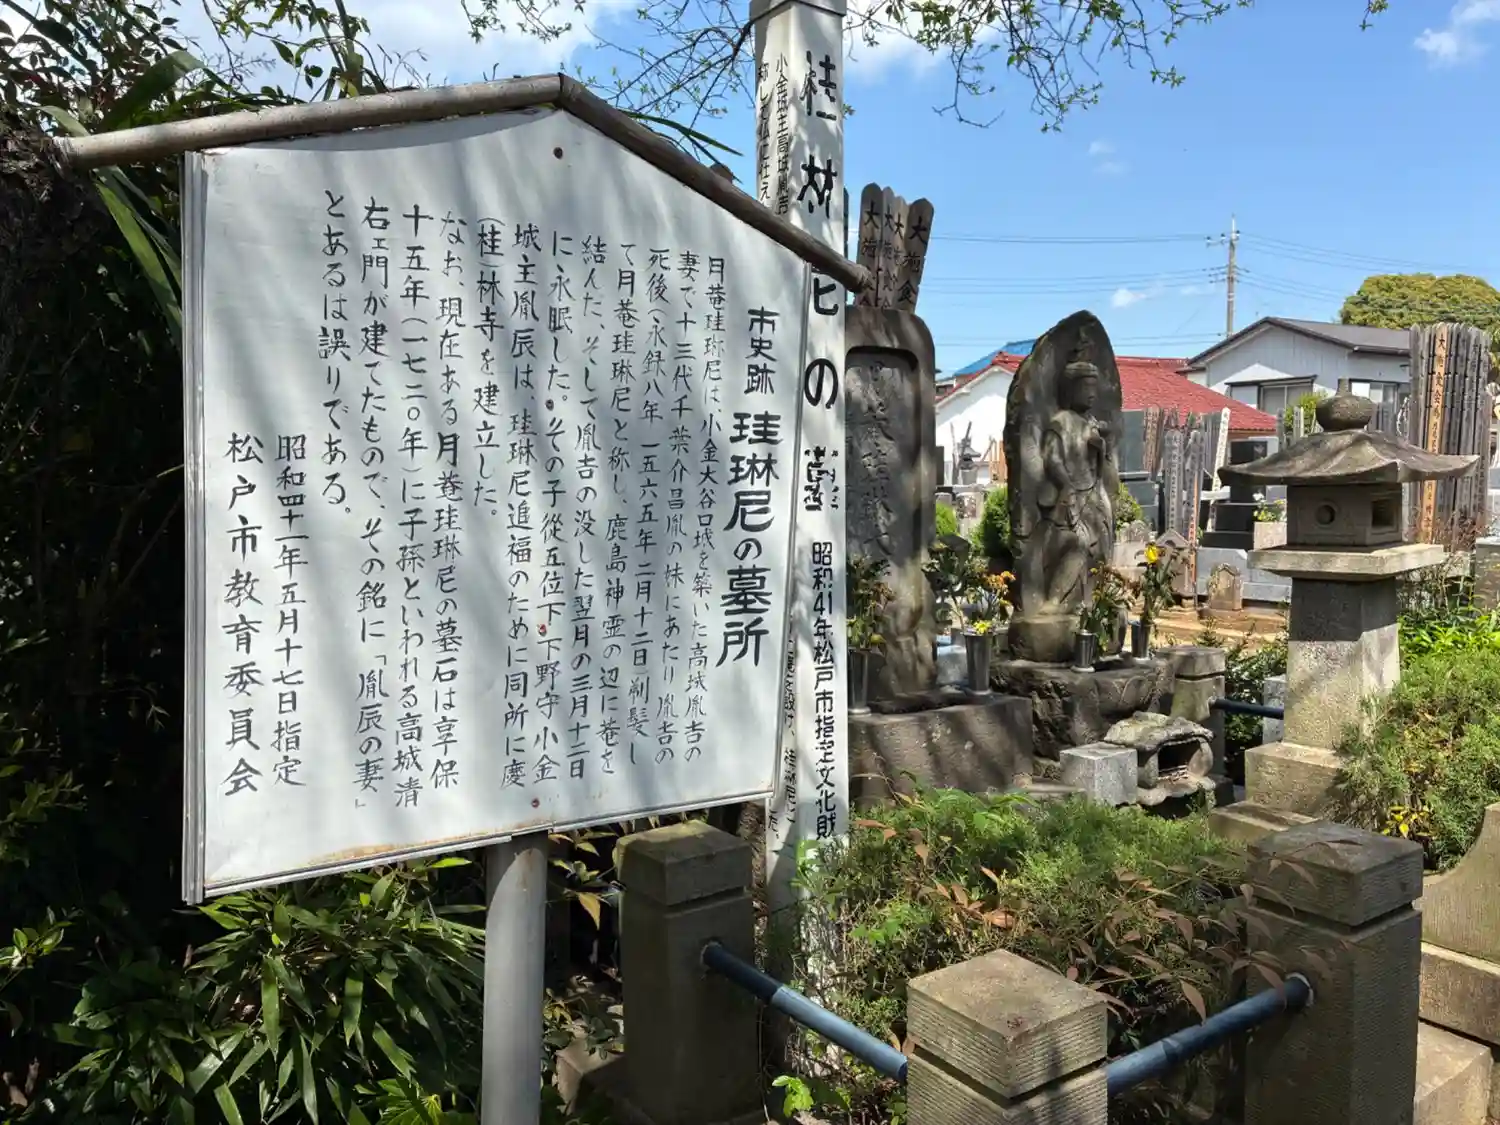 市史跡 珪琳尼の墓所
月菴珪琳尼は、小金大谷口城を築いた高城胤吉の
妻で十三代千葉介昌胤の妹にあたり胤吉の
死後(永録八年 一五六五年二月十二日剃髪)し
て月菴珪琳尼と称し、鹿島神霊の辺に菴を
結んだ、そして胤吉の没した翌月の三月十二日
に永眠した。その子從五位下、下野守小金
城主胤辰は、珪琳尼追福のために同所に慶
(桂)林寺を建立した。
なお、現在ある月菴珪琳尼の墓石は享保
十五年(一七二〇年)に子孫といわれる高城清
右ェ門が建てたもので、その銘に「胤辰の妻」
とあるは誤りである。
昭和四十一年五月十七日指定
松戸市教育委員会
桂林尼の墓
昭和41年松戸市指定文化財
小金城主高城胤吉
大施
大施
大
大施